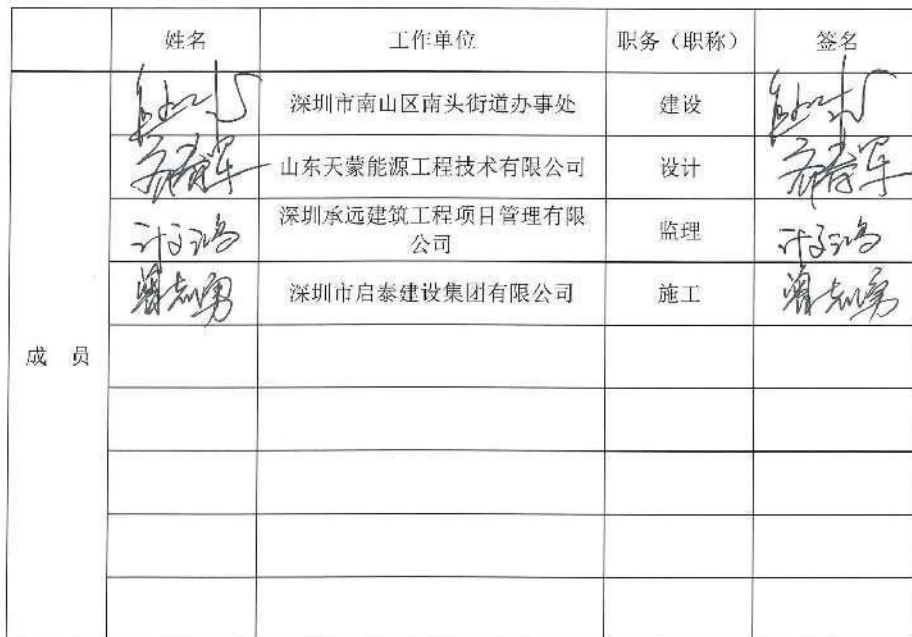 姓名 工作单位 职务（职称） 签名
深圳市南山区南头街道办事处 建设
山东天蒙能源工程技术有限公司 设计
深圳承远建筑工程项目管理有限
公司 监理
曾志勇 深圳市启泰建设集团有限公司 施工 曾志勇
成 员